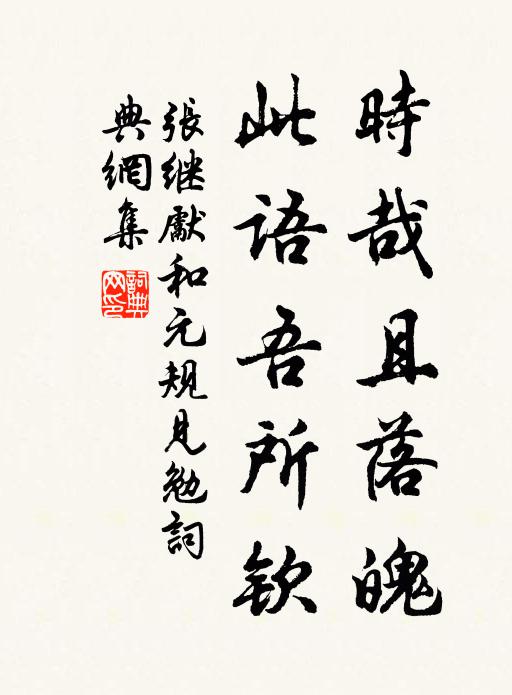 時哉且落魄
此語吾所欽
張継獻和元規見勉詞
典網集
詞典
网印